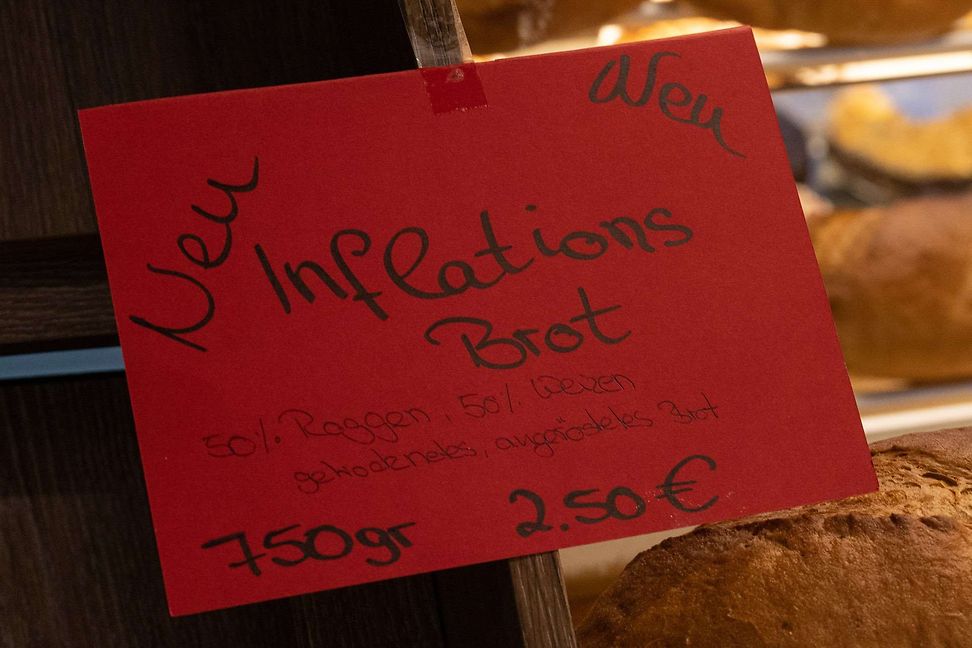 Neu
Neu
Inflations
Brot
50%. Roggen, 50%. Weizen
getrocknetes, angeröstetes Brot
750gr 2.50 €